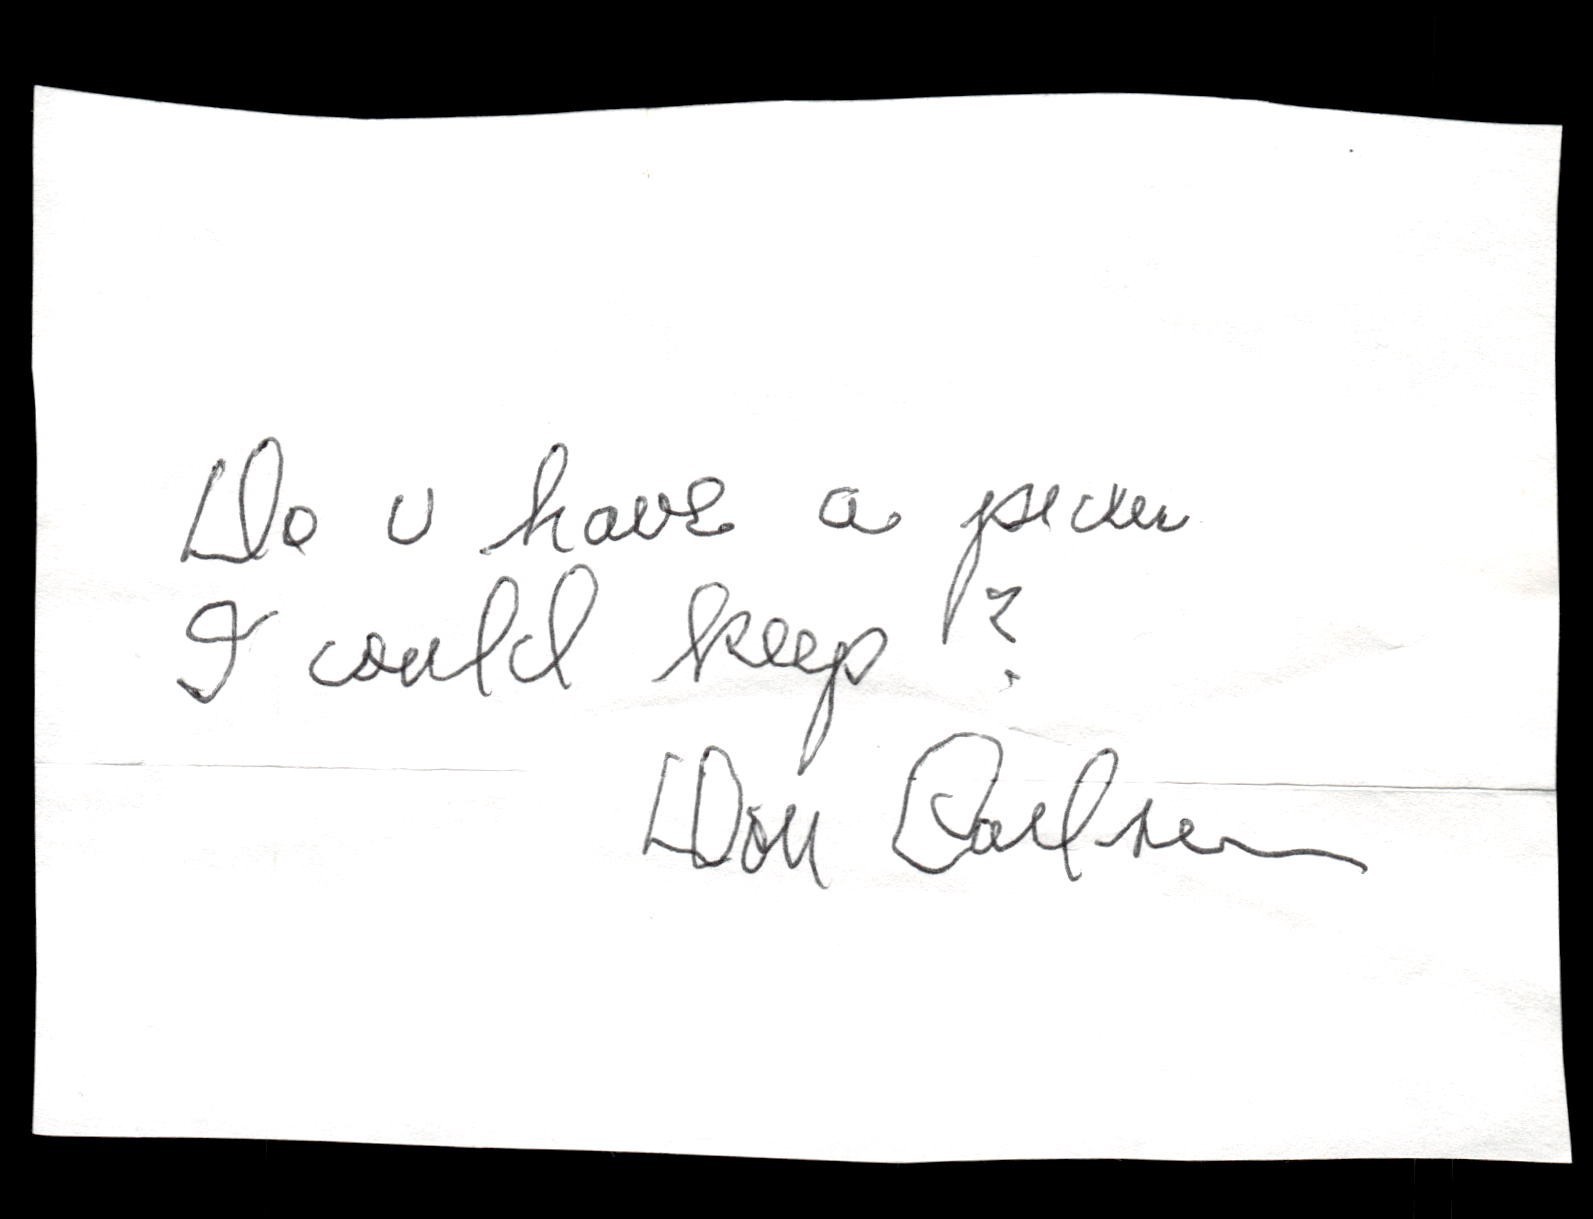 Do u have a
I could keep?
Don Carlsen